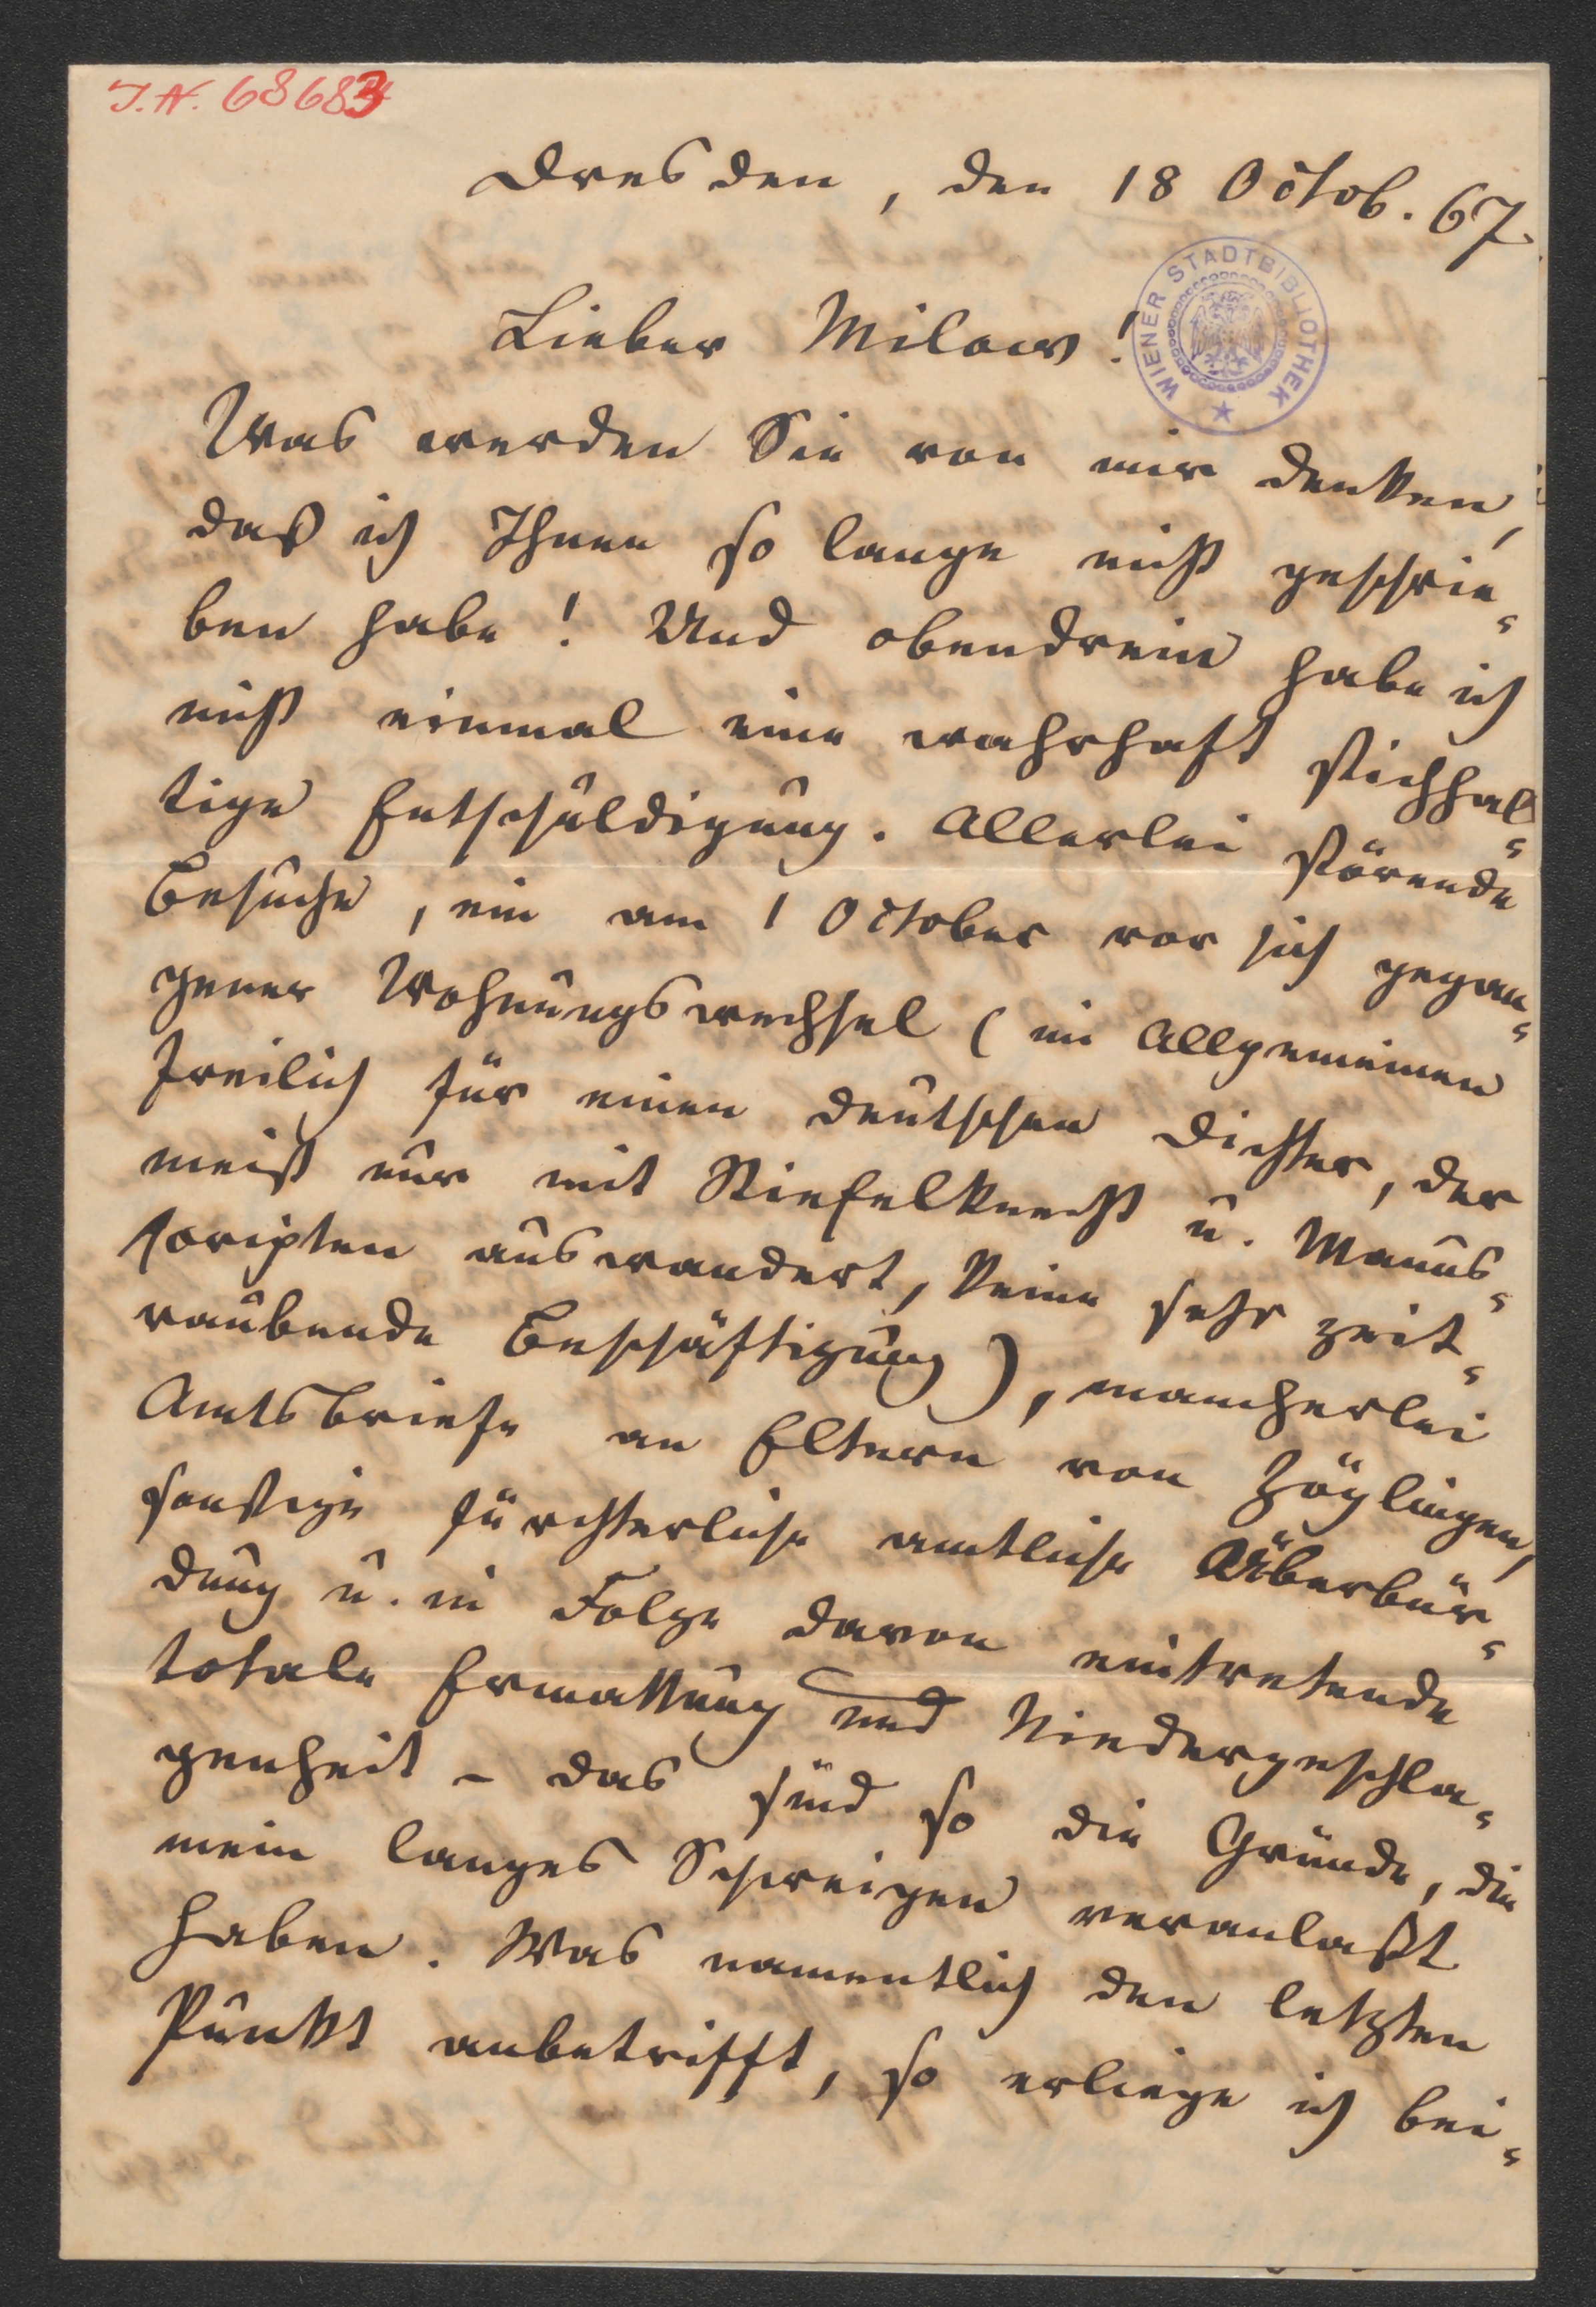 J.N. 68683
Dresden, den 18 Octob. 67.
WIENER STADTBIBLIOTHEK
Lieber Milow!
Was werden Sie von mir denken,
daß ich Ihnen so lange nicht geschrie-
ben habe! Und obendrein habe ich
nicht einmal eine wahrhaft stichhal-
tige Entschuldigung. Allerlei störende
Besuche, ein am 1 October vor sich gegan-
gener Wohnungswechsel (im Allgemeinen
freilich für einen deutschen Dichter, der
meist nur mit Stiefelknecht u. Manus-
scripten auswandert, keine sehr zeit-
raubende Beschäftigung), mancherlei
Amtsbriefe an Eltern von Zöglingen,
sonstige fürchterliche amtliche Überbür-
dung u. in Folge davon eintretende
totale Ermattung und Niedergeschla-
genheit – das sind so die Gründe, die
mein langes Schweigen veranlaßt
haben. Was namentlich den letzten
Punkt anbetrifft, so erliege ich bei-